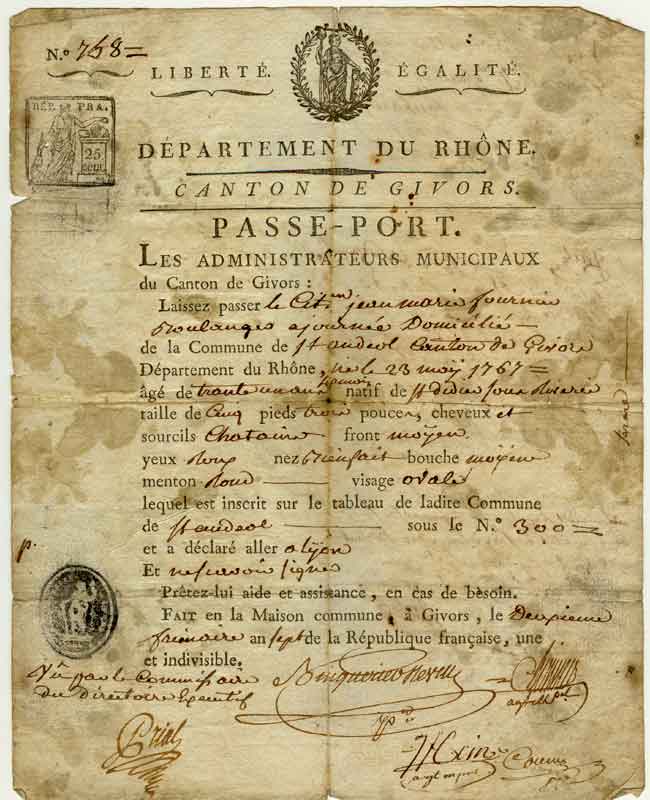 N.º 758=
LIBERTÉ. ÉGALITÉ.
RÉP. FRA.
25
cent.
DÉPARTEMENT DU RHÔNE.
CANTON DE GIVORS.
PASSE-PORT.
LES ADMINISTRATEURS MUNICIPAUX
du Canton de Givors :
Laissez passer le Cit.en jean marie fournié
Boulanger a journée Domicilié —
de la Commune de st andeol Canton de Givors
Département du Rhône, né le 23 may 1767 =
âgé de trante un ans natif de st didier sous Riverie
taille de cinq pieds trois pouces, cheveux et
sourcils Chataire front moyen
yeux Roux nez Bienfait bouche moyene
menton Rond visage ovale
lequel est inscrit sur le tableau de ladite Commune
de st andeol sous le N.º 300 =
et a déclaré aller a lyon
Et ne scavoir signé
Prêtez-lui aide et assistance, en cas de besoin.
FAIT en la Maison commune, à Givors, le Deuxieme
frimaire an sept de la République française, une
et indivisible.
Vû par le Commissaire
du directoire Executif